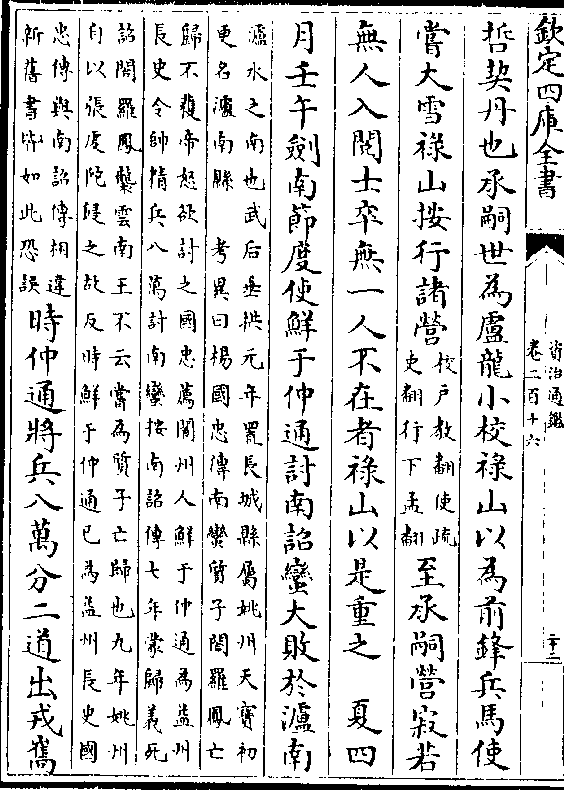 欽定四庫全書
資治通鑑
卷二百十六
哲契丹也承嗣世為盧龍小校祿山以為前鋒兵馬使
嘗大雪祿山按行諸營
校戶教翻使疏
史翻行下孟翻
至承嗣營寂若
無人入閱士卒無一人不在者祿山以是重之　夏四
月壬午劍南節度使鮮于仲通討南詔蠻大敗於瀘南
瀘水之南也武后垂拱元年置長城縣屬姚州天寶初
更名瀘南縣　考異曰楊國忠傳南蠻質子閤羅鳳亡
歸不獲帝怒欲討之國忠薦閬州人鮮于仲通為益州
長史令帥精兵八萬討南蠻按南詔傳七年蒙歸義死
詔閤羅鳳襲雲南王不云嘗為質子亡歸也九年姚州
自以張虔陀侵之故反時鮮于仲通已為益州長史國
忠傳與南詔傳相違
新舊書皆如此恐誤
時仲通將兵八萬分二道出戎巂